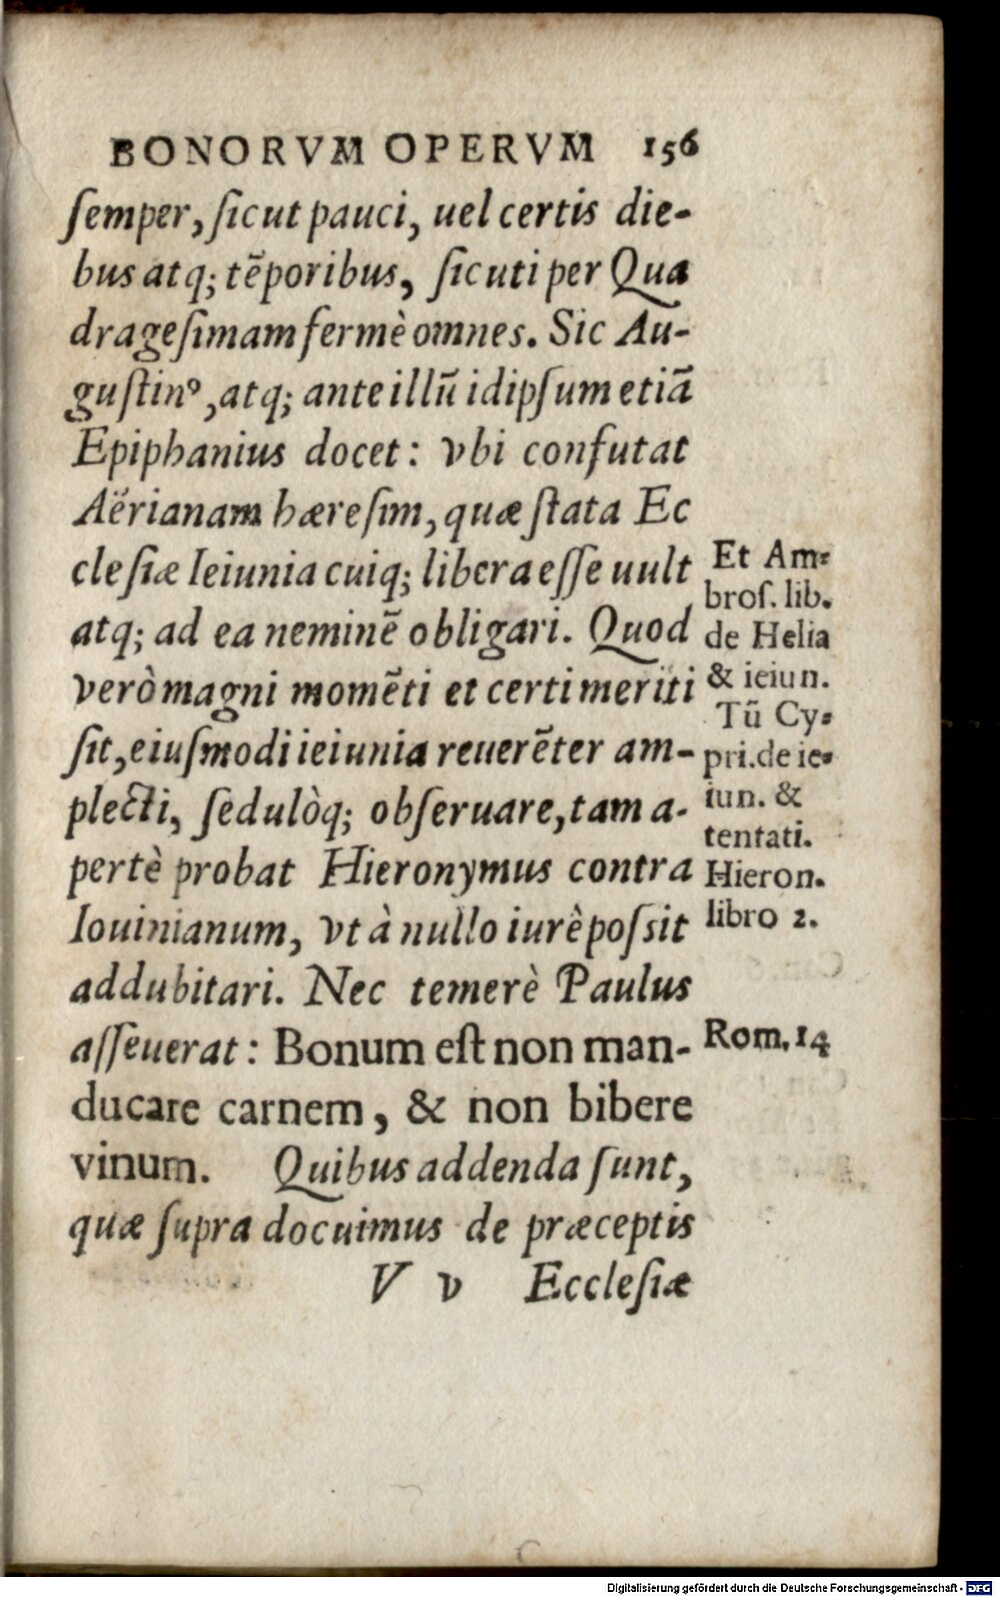 BONORVM OPERVM 156
ſemper, ſicut pauci, uel certis die-
bus atq; tẽporibus, ſicuti per Qua
drageſimam fermè omnes. Sic Au-
guſtinꝰ, atq; ante illũ idipſum etiã
Epiphanius docet: vbi confutat
Aërianam hæreſim, quæ ſtata Ec
cleſiæ Ieiunia cuiq; libera eſſe uult
atq; ad ea neminẽ obligari. Quod
verò magni momẽti et certi meriti
ſit, eiuſmodi ieiunia reuerẽter am-
plecti, ſedulòq; obſeruare, tam a-
pertè probat Hieronymus contra
Iouinianum, vt à nullo iurè poſsit
addubitari. Nec temerè Paulus
aſſeuerat: Bonum eſt non man-
ducare carnem, & non bibere
vinum. Quibus addenda ſunt,
quæ ſupra docuimus de præceptis
V v Eccleſiæ
Et Am-
broſ. lib.
de Helia
& ieiun.
Tũ Cy-
pri. de ie-
iun. &
tentati.
Hieron.
libro 2.
Rom. 14
Digitalisierung gefördert durch die Deutsche Forschungsgemeinschaft - DFG